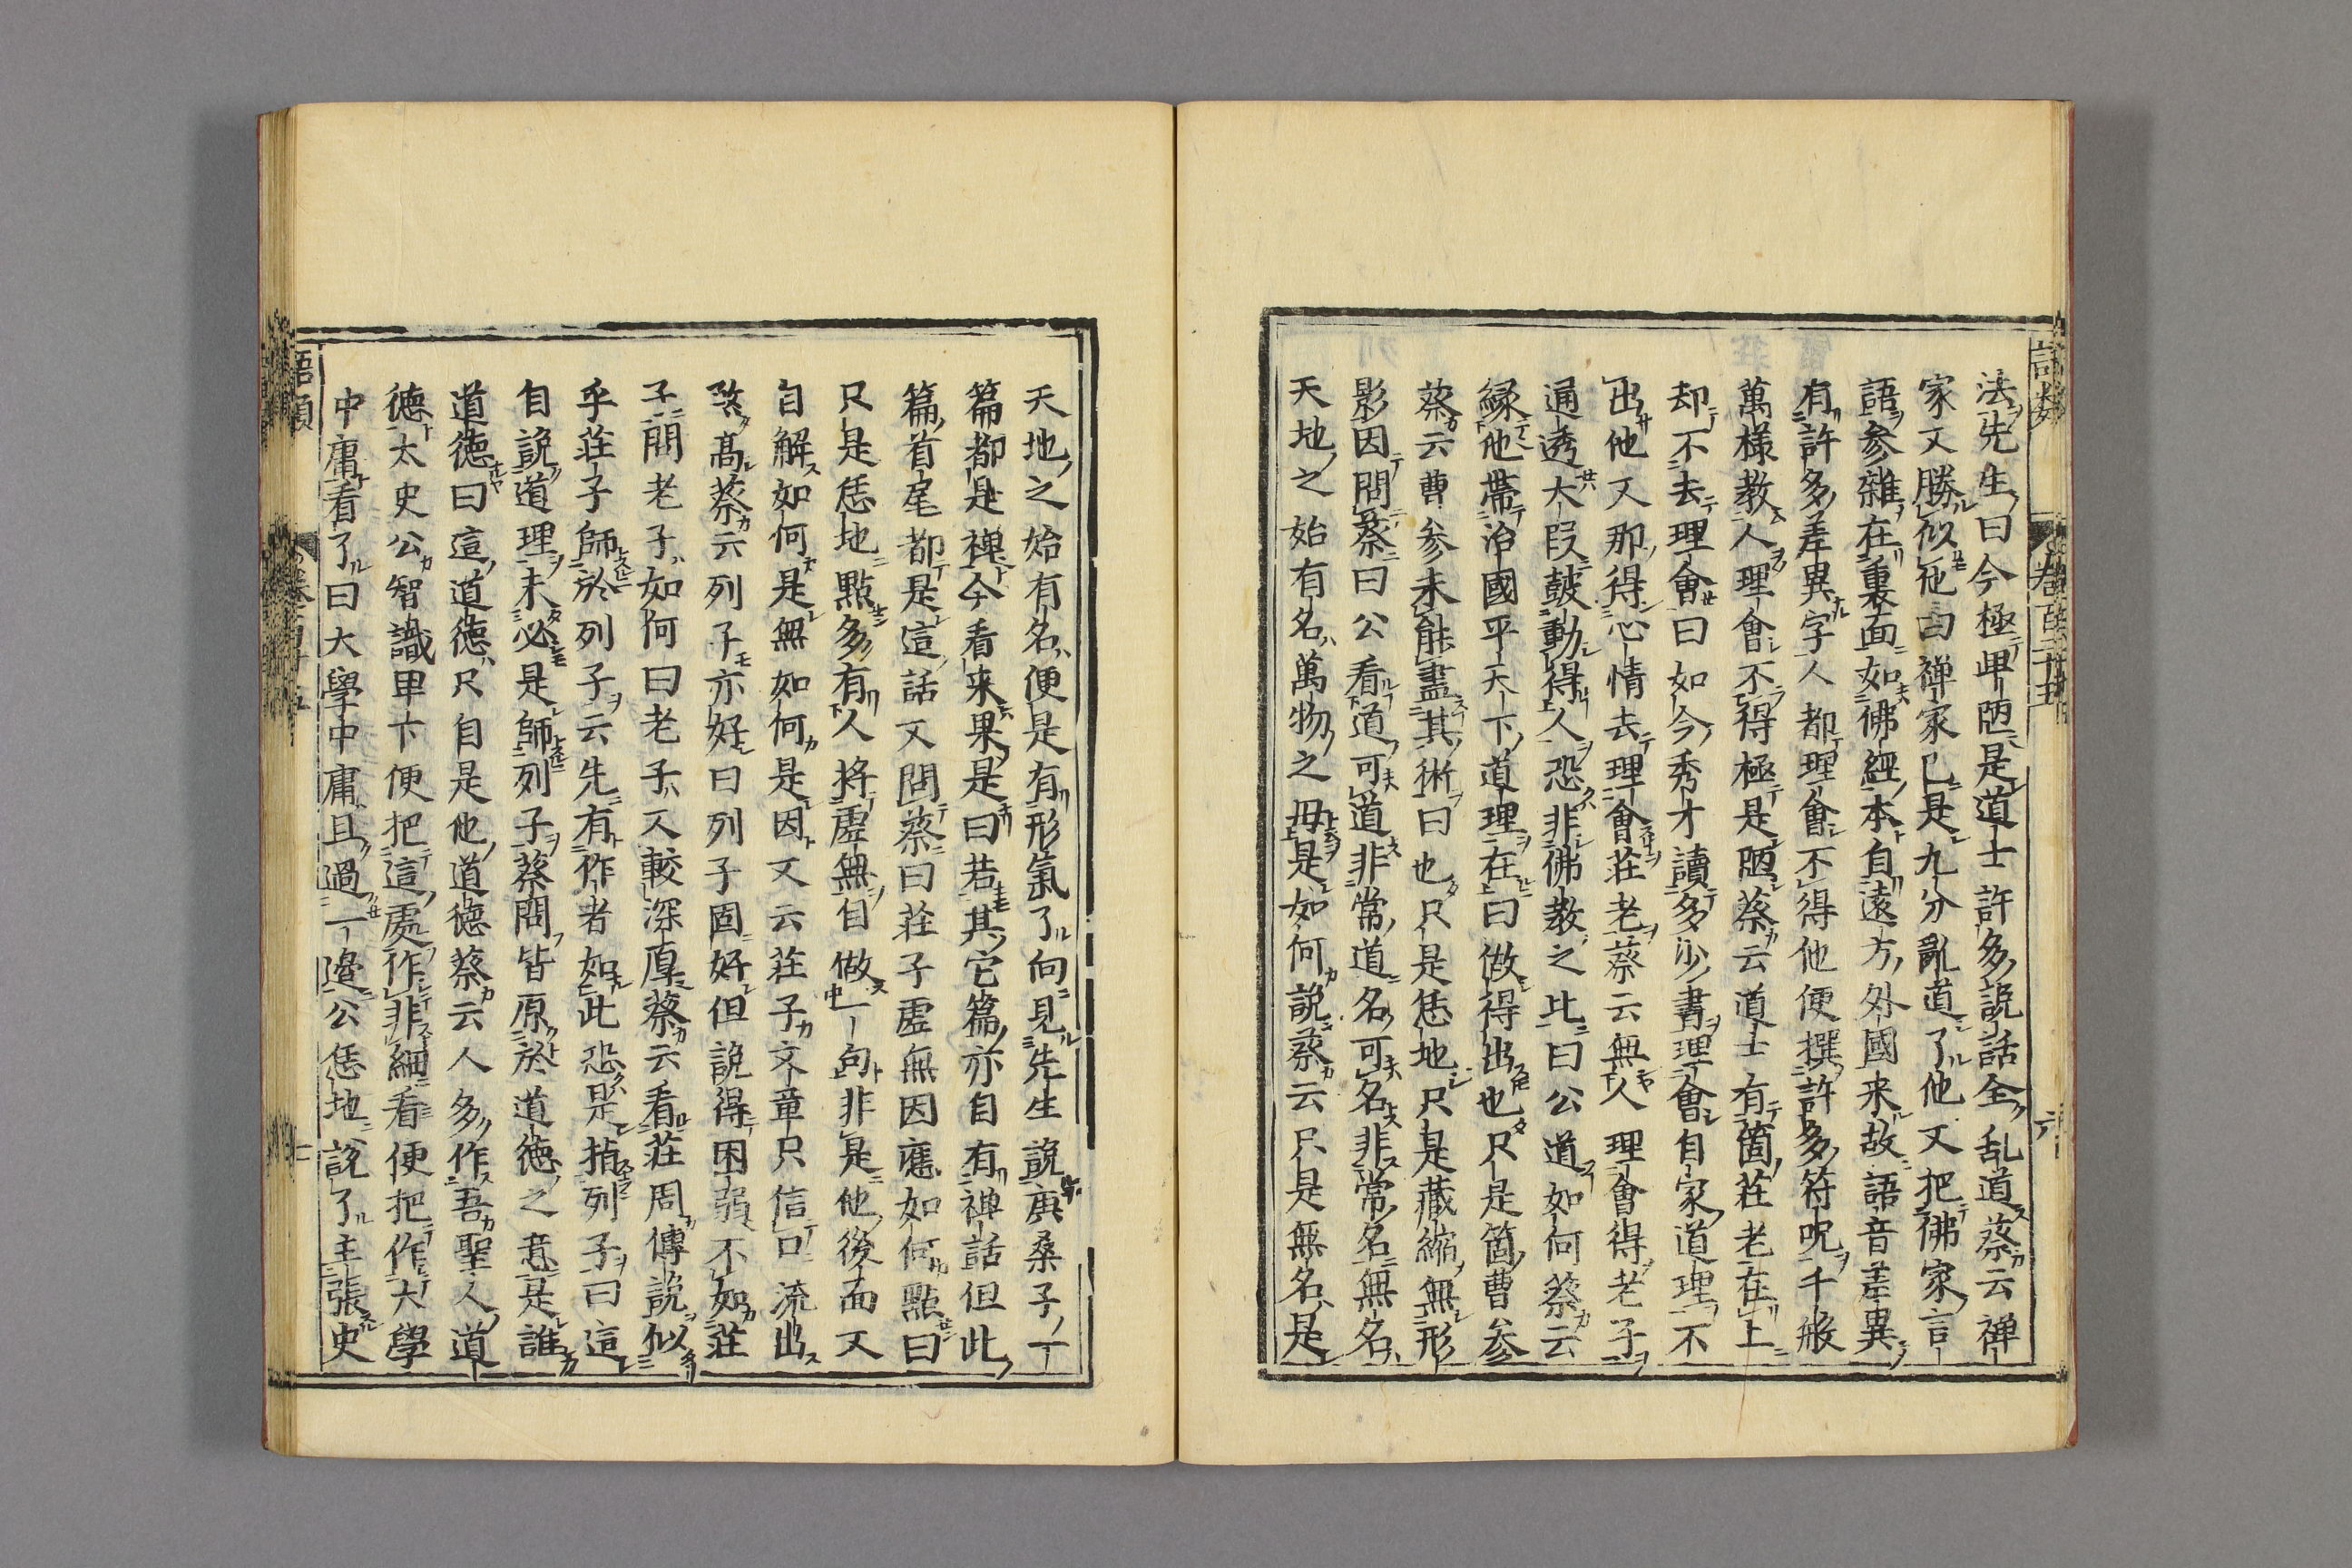 法先生曰今極卑陋是道士許多說話全乱道蔡云禅
家又勝似他曰禅家已是九分亂道了他又把佛家言
語参雜在裏面如佛經本自遠方外國来故語音差異
有許多差異字人都理會不得他便撰許多符呪千般
萬樣教人理會不得極是陋蔡云道士有箇莊老在上
却不去理會曰如今秀才讀多少書理會自家道理不
出他又那得心情去理會莊老蔡云無人理會得老子
通透大段鼓動得人恐非佛教之比曰公道如何蔡云
緣他帶治國平天下道理在曰做得出也只是箇曹参
蔡云曹参未能盡其術曰也只是恁地只是藏縮無形
影因問蔡曰公看道可道非常道名可名非常名無名
天地之始有名萬物之母是如何說蔡云只是無名是
天地之始有名便是有形氣了向見先生說庚桑子一
篇都是禅今看来果是曰若其它篇亦自有禅話但此
篇首尾都是這話又問蔡曰莊子虚無因應如何點曰
只是恁地點多有人將虚無自做一句非是他後面又
自解如何是無如何是因又云莊子文章只信口流出
煞高蔡云列子亦好曰列子固好但說得困弱不如莊
子問老子如何曰老子又較深厚蔡云看莊周傳說似
乎莊子師於列子云先有作者如此恐是指列子曰這
自說道理未必是師列子蔡問皆原於道德之意是誰
道德曰這道德只自是他道德蔡云人多作吾聖人道
德太史公智識卑下便把這處作非細看便把作大學
中庸看了曰大學中庸且過一邊公恁地說了主張史
語類 卷百二十五 六